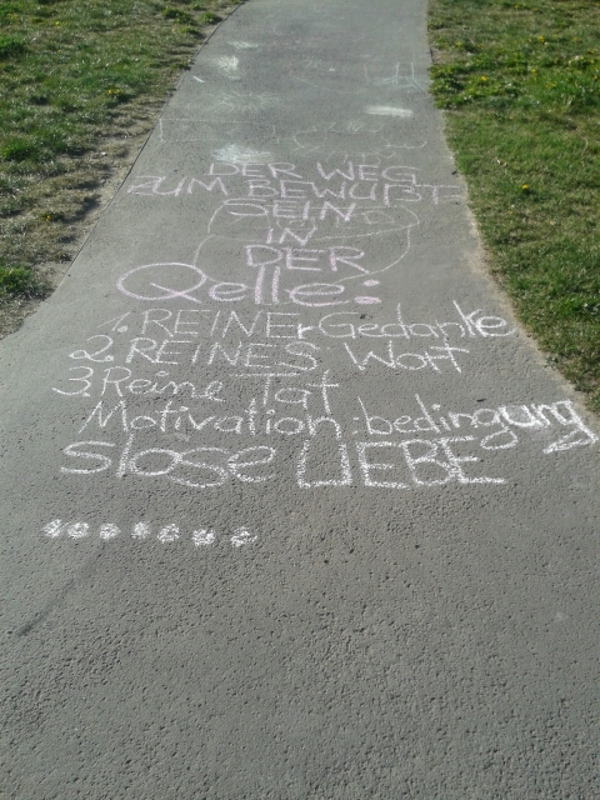 DER WEG
ZUM BEWUßT
SEIN
IN
DER
Qelle:
1. REINEr Gedanke
2. REINES Wort
3. Reine Tat
Motivation: bedingung
slose LIEBE